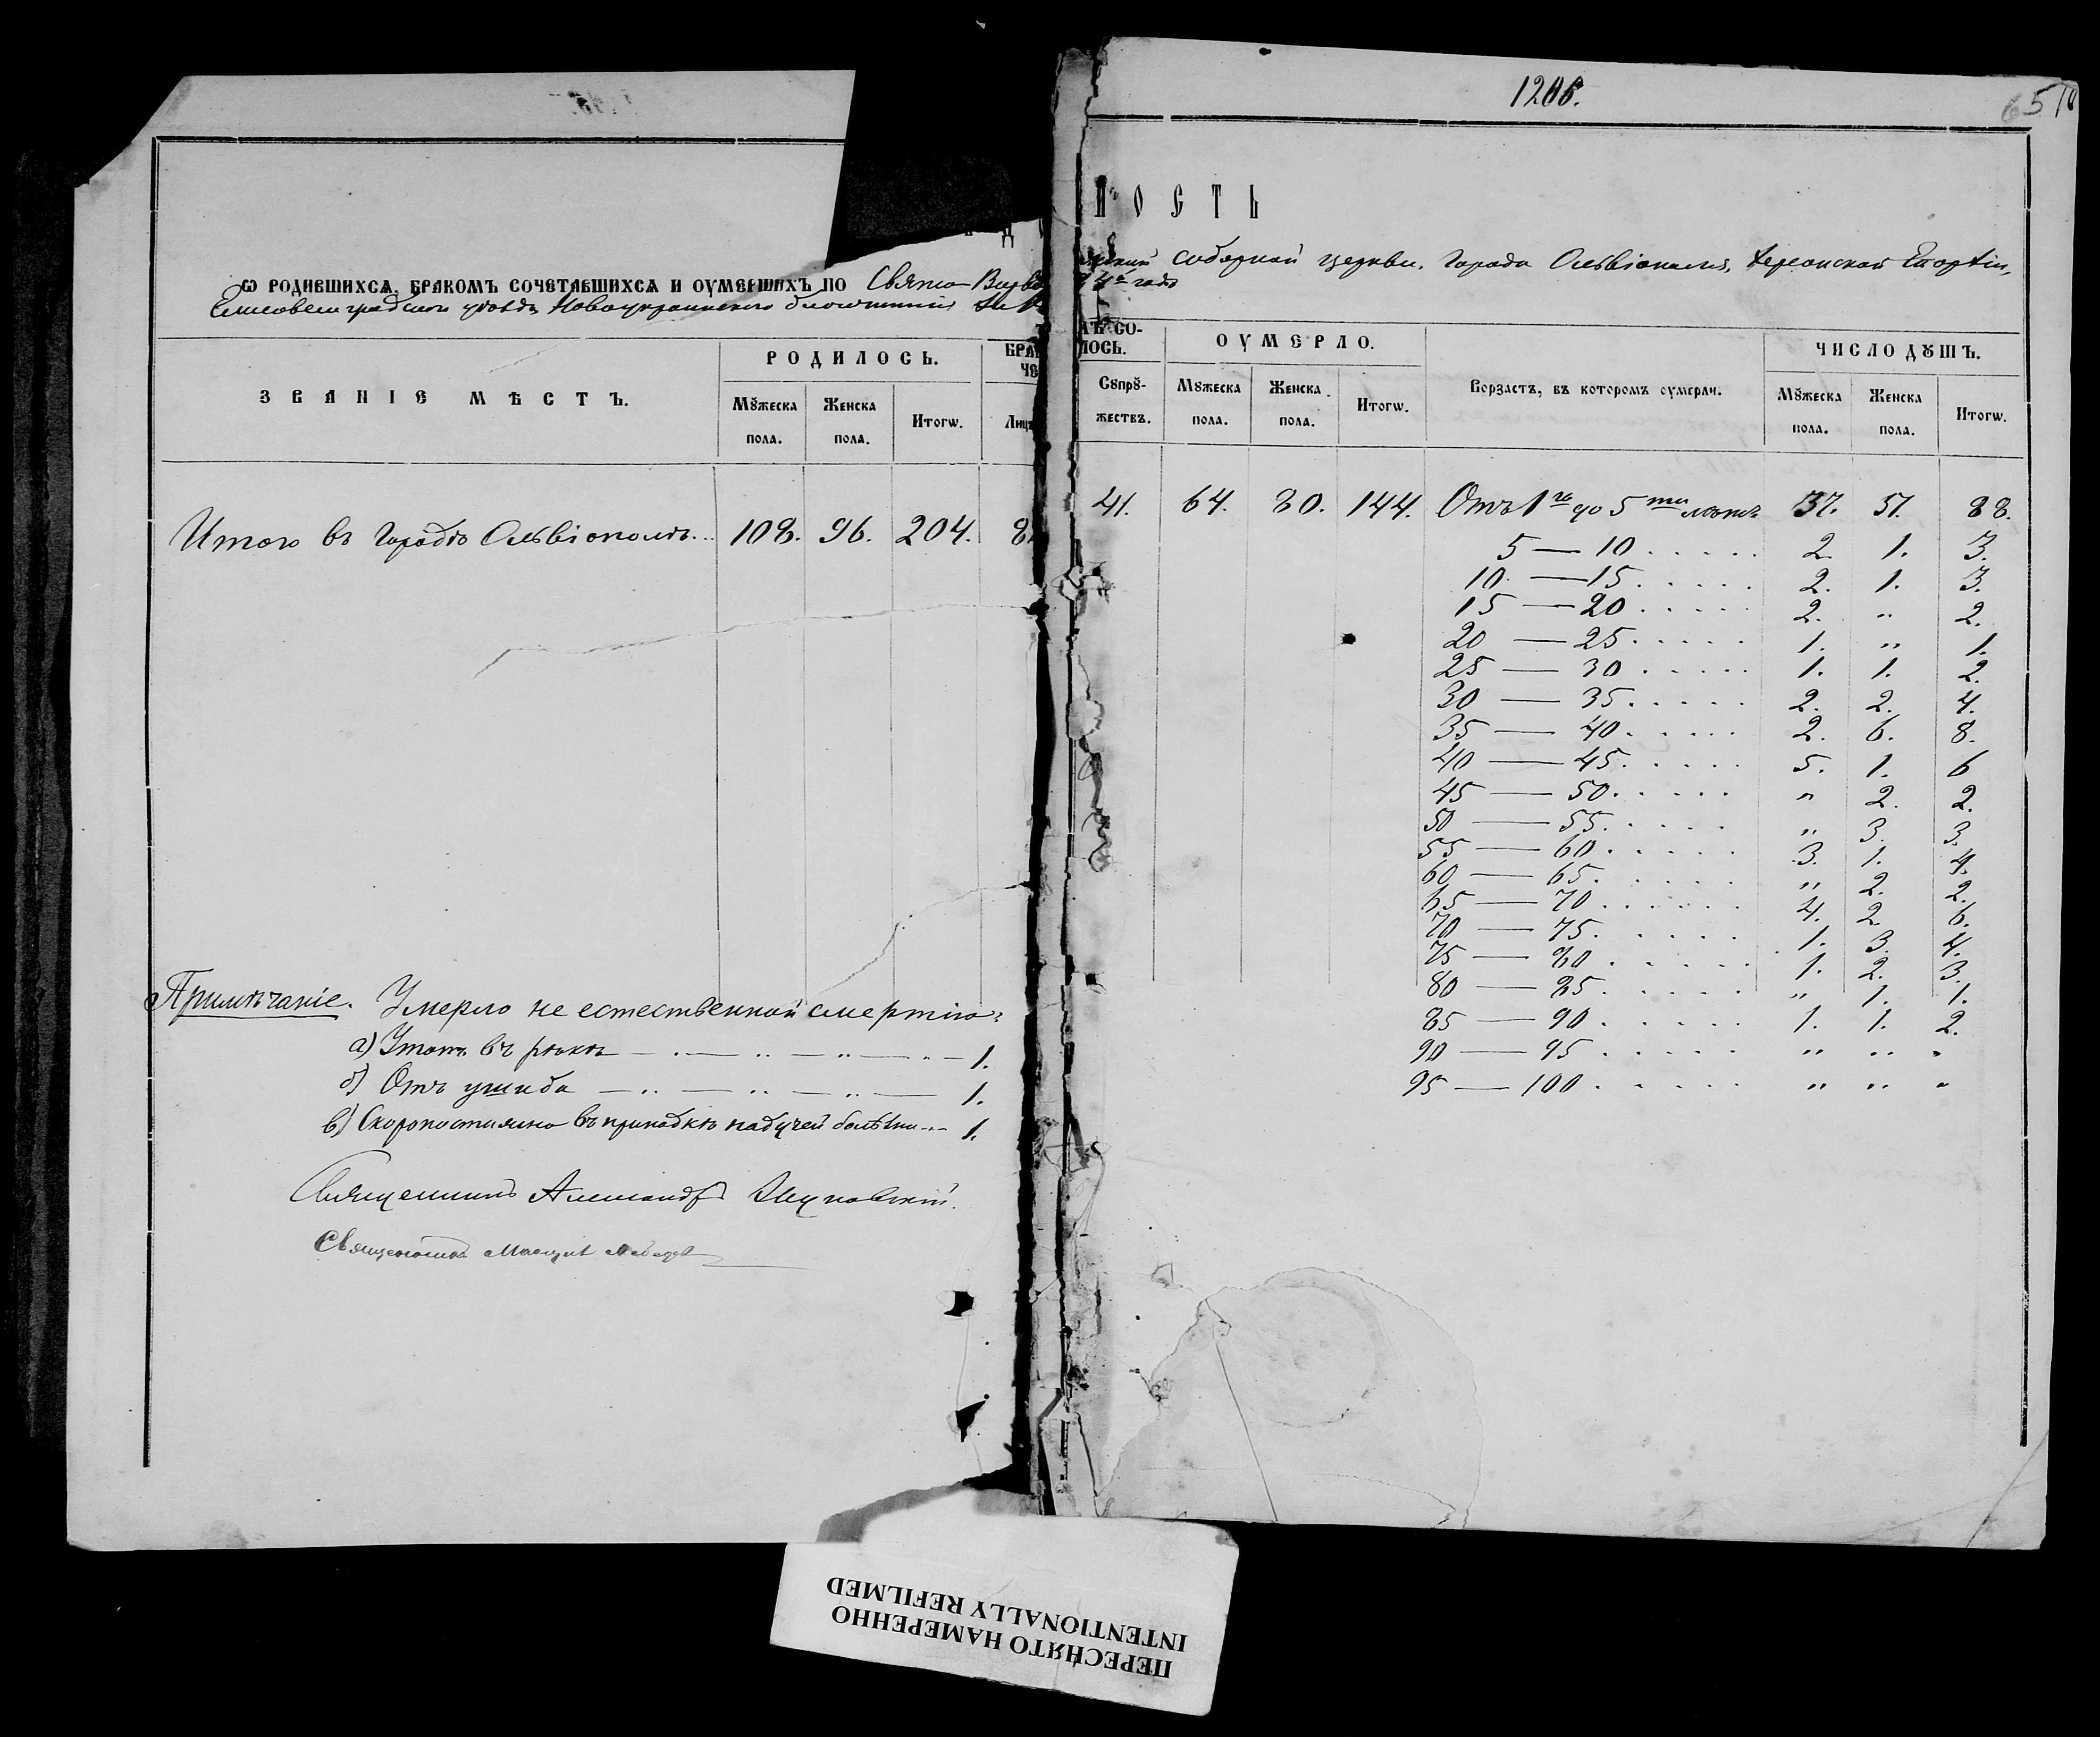 1206.
6510
НОСТЬ
Ѡ РОДИВШИХСѦ, БРАКОМЪ СОЧЕТАВШИХСѦ И ОУМЕРШИХЪ ПО Свято соборной церкви, города Ольвіополя, Херсонской Епархіи,
Елисаветградскаго уѣзда, Новоукраинского благочинія За года
РОДИЛОСЬ. ОУМЕРЛО. ЧИСЛО ДꙊШЪ.
ЗВАНІЕ МѢСТЪ. МꙊжеска пола. Женска пола. Итогѡ. СꙊпрꙊ-жествъ. МꙊжеска пола. Женска пола. Итогѡ. Возрастъ, въ которомъ оумерли. МꙊжеска пола. Женска пола. Итогѡ.
Итого въ городѣ Ольвіополѣ.. 108. 96. 204. 41. 64. 80. 144. Отъ 1го до 5ти лѣтъ 37. 51. 88.
5 — 10 . . . . . 2. 1. 3.
10 — 15 . . . . . 2. 1. 3.
15 — 20 . . . . . 2. " 2.
20 — 25 . . . . . 1. " 1.
25 — 30 . . . . . 1. 1. 2.
30 — 35 . . . . . 2. 2. 4.
35 — 40 . . . . . 2. 6. 8.
40 — 45 . . . . . 5. 1. 6
45 — 50 . . . . . " 2. 2.
50 — 55 . . . . . " 3. 3.
55 — 60 . . . . . 3. 1. 4.
60 — 65 . . . . . " 2. 2.
65 — 70 . . . . . 4. 2. 6.
70 — 75 . . . . . 1. 3. 4.
75 — 80 . . . . . 1. 2. 3.
80 — 85 . . . . . " 1. 1.
85 — 90 . . . . . 1. 1. 2.
90 — 95 . . . . . " " "
95 — 100 . . . . . " " "
Примѣчаніе. Умерло не естественной смертію:
а) Утопъ въ рѣкѣ — 1.
б) Отъ ушиба — 1.
в) Скоропостижно въ припадкѣ падучей болѣзни — 1.
Священникъ Александръ
Священникъ
ПЕРЕСНЯТО НАМЕРЕННО
INTENTIONALLY REFILMED